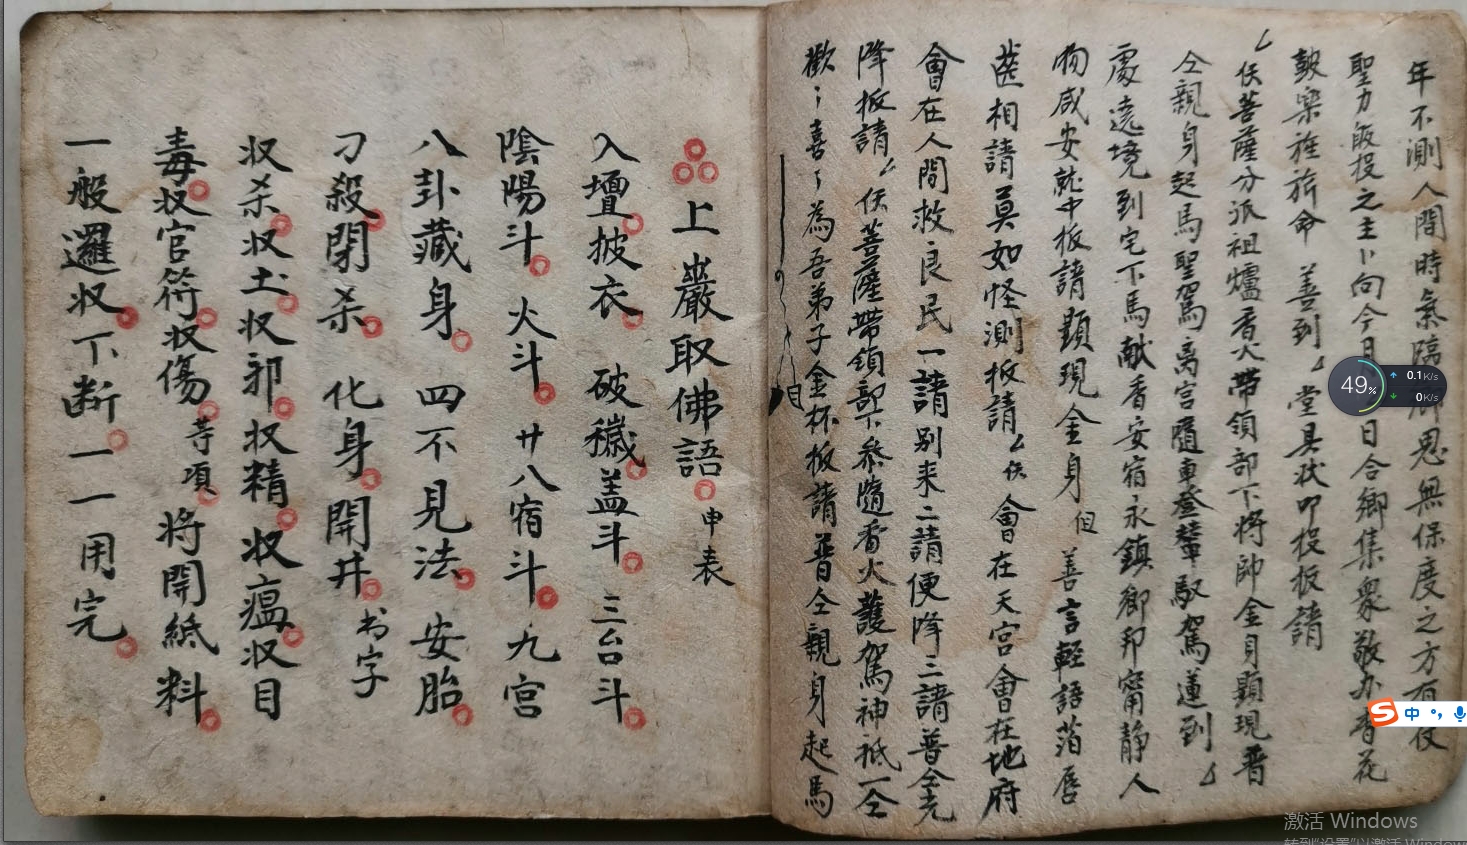 年不測人間時氣臨鄉思無保度之方有
聖力皈投之主〻向今日日合鄉集眾敬办香花
鼓樂旌旂命 善到 堂具狀叩投扳請
伏菩薩分派祖爐香火帶領部下將帥金身顯現普
仝親身起馬聖駕离宮隨車登輦馭駕蓮到
處遠境到宅下馬献香安宿永鎮鄉邦甯靜人
物咸安就中扳請顯現金身 但 善言輕語
相請莫如怪測扳請 伏 會在天宮會在地府
會在人間救良民一請別来二請便降三請普仝
降扳請 伏菩薩帶領部下叅隨香火護駕神祗一仝
歡〻喜〻為吾弟子金杯扳請普仝親身起馬
上巖取佛語 申表
入壇披衣 破穢盖斗 三台斗
陰陽斗 火斗 廿八宿斗 九宮
八卦藏身 四不見法 安胎
刀殺閉杀 化身開井 书字
収杀収土収邪収精収瘟収目
毒収官符収傷 等項 將開紙料
一般邏収下断一一用完
49%
0.1K/s
0K/s
中
激活 Windows
转到"设置"以激活 Windows